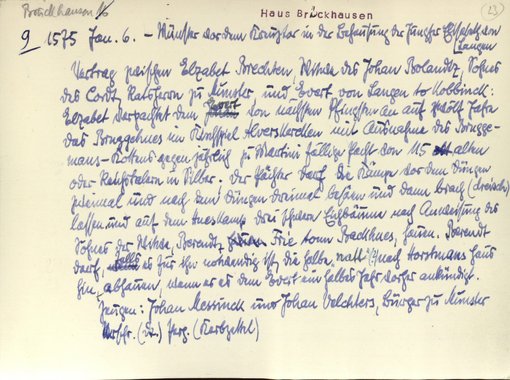 Brückhausen
Haus Brückhausen
(23)
9 1575 Jan. 6. — Münster vor dem Kreuztor in der Behausung der Jungfer Elisabeth von
Langen
Vertrag zwischen Elzabet Brechten, Witwe des Johan Bolandtz, Sohnes
des Cordt, Ratsherrn zu Münster und Evert von Langen to Kobbinck:
Elzabet verpachtet dem Evert von nächsten Pfingsten an auf zwölf Jahre
das Bruggehues im Kirchspiel Alverskerken mit Ausnahme des Brugge-
mans-Kottens gegen jährlich zu Martini fällige Pacht von 115 alten
oder Reichstalern in Silber. Der Pächter darf die Kämpe vor dem Düngen
zweimal und nach dem Düngen dreimal besäen und dann brach (dreisch)
lassen und auf dem kamp drei Eichbäume nach Anweisung des
Sohnes der Witwe, Berendt, tom Brackhues, hauen. Berendt
darf es für ihn notwendig ist, die halbe nach Horstmans Haus
hin, abhauen, wenn er es dem Evert ein halbes Jahr vorher ankündigt.
Zeugen: Johan Messinck und Johan Velchters, Bürger zu Münster
(Dt.) Perg. (Kerbzettel)